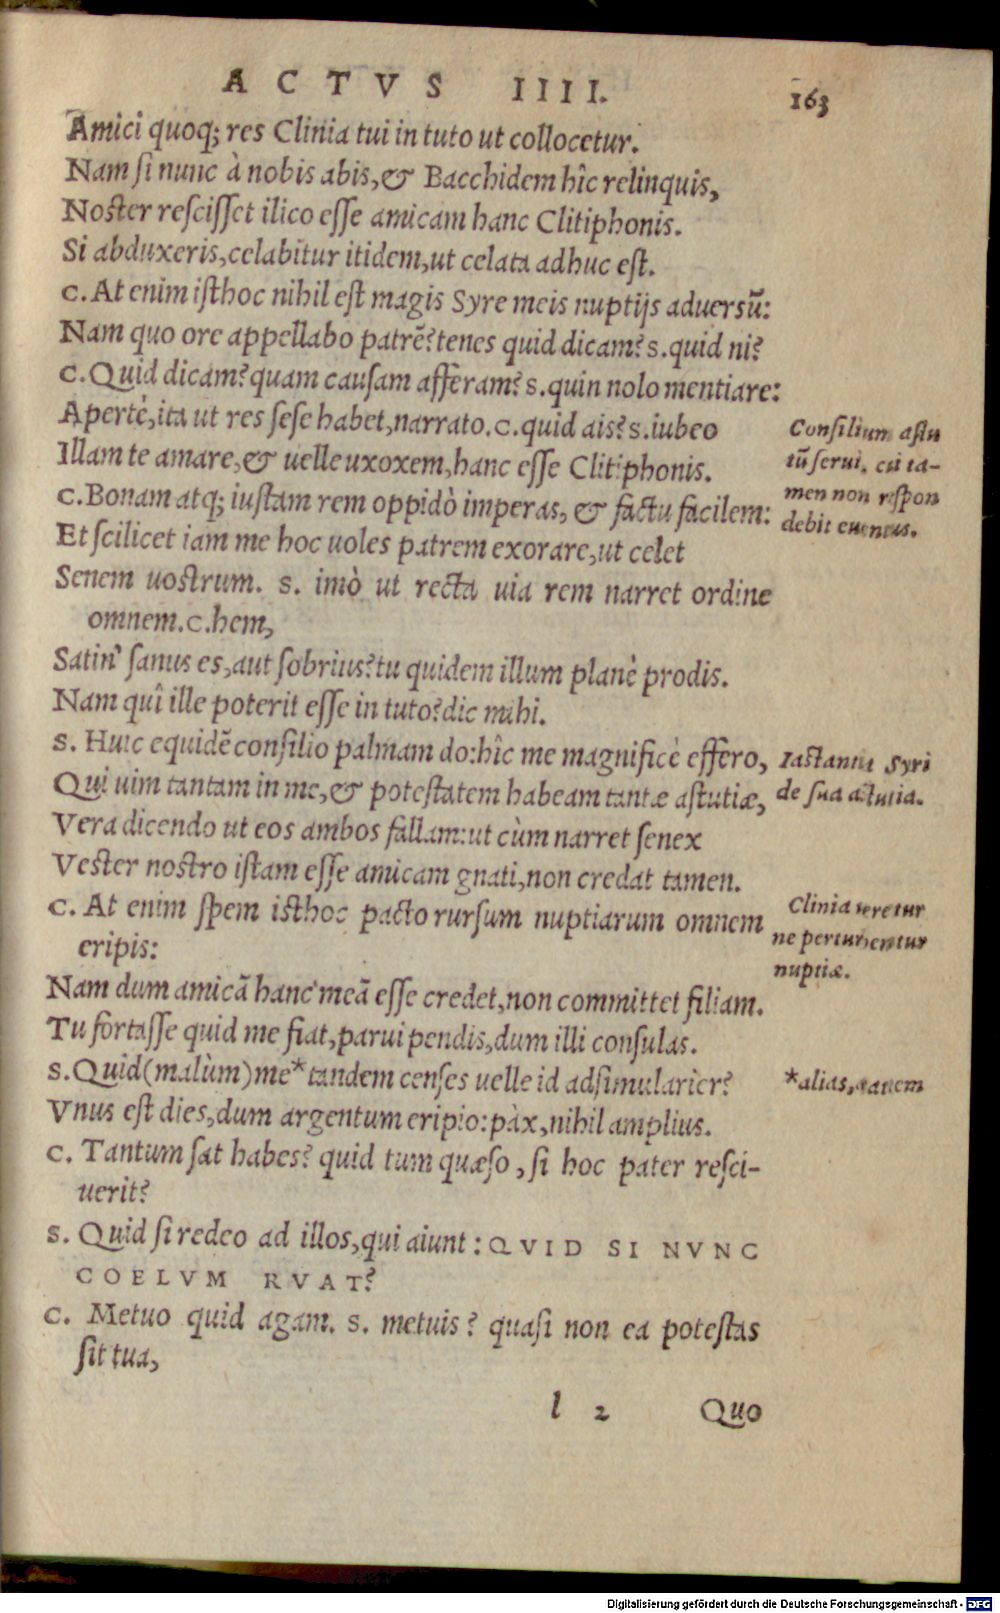 ACTVS IIII. 163
Amici quoq; res Clinia tui in tuto ut collocetur.
Nam si nunc à nobis abis,& Bacchidem hîc relinquis,
Noster rescisset ilico esse amicam hanc Clitiphonis.
Si abduxeris,celabitur itidem,ut celata adhuc est.
C.At enim isthoc nihil est magis Syre meis nuptijs aduersū:
Nam quo ore appellabo patrē?tenes quid dicam?S.quid ni?
C.Quid dicam?quam causam afferam?S.quin nolo mentiare:
Apertè,ita ut res sese habet,narrato.C.quid ais?S.iubeo
Illam te amare,& uelle uxoxem,hanc esse Clitiphonis.
C.Bonam atq; iustam rem oppidò imperas, & factu facilem:
Et scilicet iam me hoc uoles patrem exorare,ut celet
Senem uostrum. S. imò ut recta uia rem narret ordine
omnem.C.hem,
Satin' sanus es,aut sobrius?tu quidem illum planè prodis.
Nam quî ille poterit esse in tuto?dic mihi.
S. Huic equidē consilio palmam do:hîc me magnificè effero,
Qui uim tantam in me,& potestatem habeam tantæ astutiæ,
Vera dicendo ut eos ambos fallam:ut cùm narret senex
Vester nostro istam esse amicam gnati,non credat tamen.
C. At enim spem isthoc pacto rursum nuptiarum omnem
eripis:
Nam dum amicā hanc meā esse credet,non committet filiam.
Tu fortasse quid me fiat,parui pendis,dum illi consulas.
S.Quid(malùm)me*tandem censes uelle id adsimularier?
Vnus est dies,dum argentum eripio:pàx,nihil amplius.
C. Tantum sat habes? quid tum quæso, si hoc pater resci-
uerit?
S. Quid si redeo ad illos,qui aiunt: QVID SI NVNC
COELVM RVAT?
C. Metuo quid agam. S. metuis? quasi non ea potestas
sit tua,
l 2 Quo
Consilium astu
tū serui, cui ta-
men non respon
debit euentus.
Iactantia Syri
de sua astutia.
Clinia ueretur
ne perturbentur
nuptiæ.
*alias, tamen
Digitalisierung gefördert durch die Deutsche Forschungsgemeinschaft - DFG